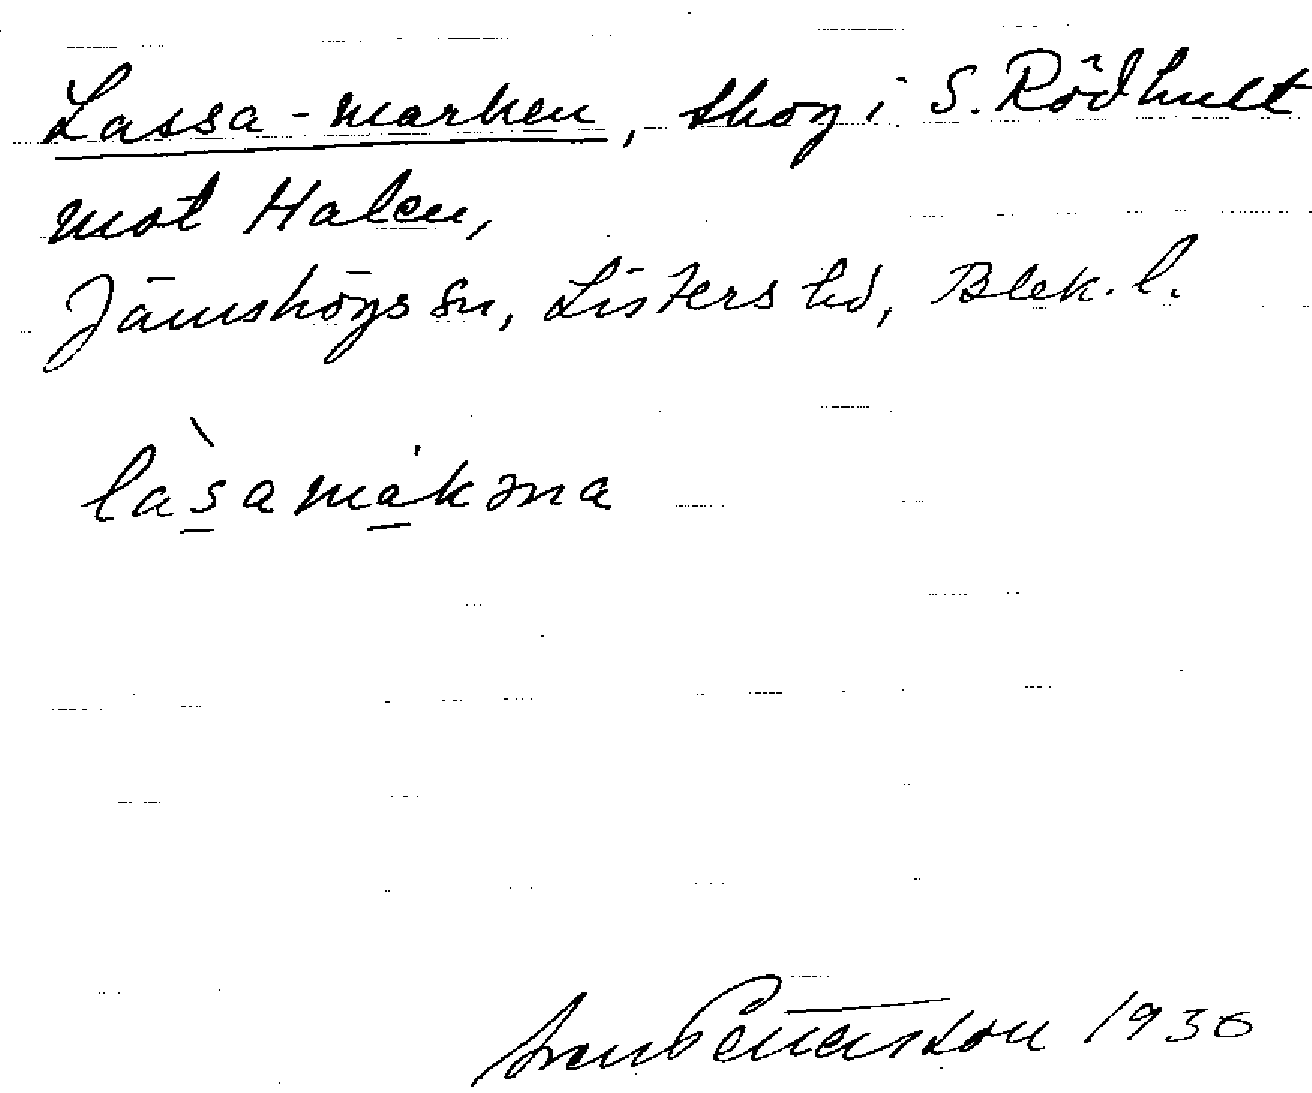 Lassa-marken, skog i S. Rödhult
mot Halen,
Jämshögs sn, Listers hd, Blek. l.
làsamákəna
Pettersson 1930